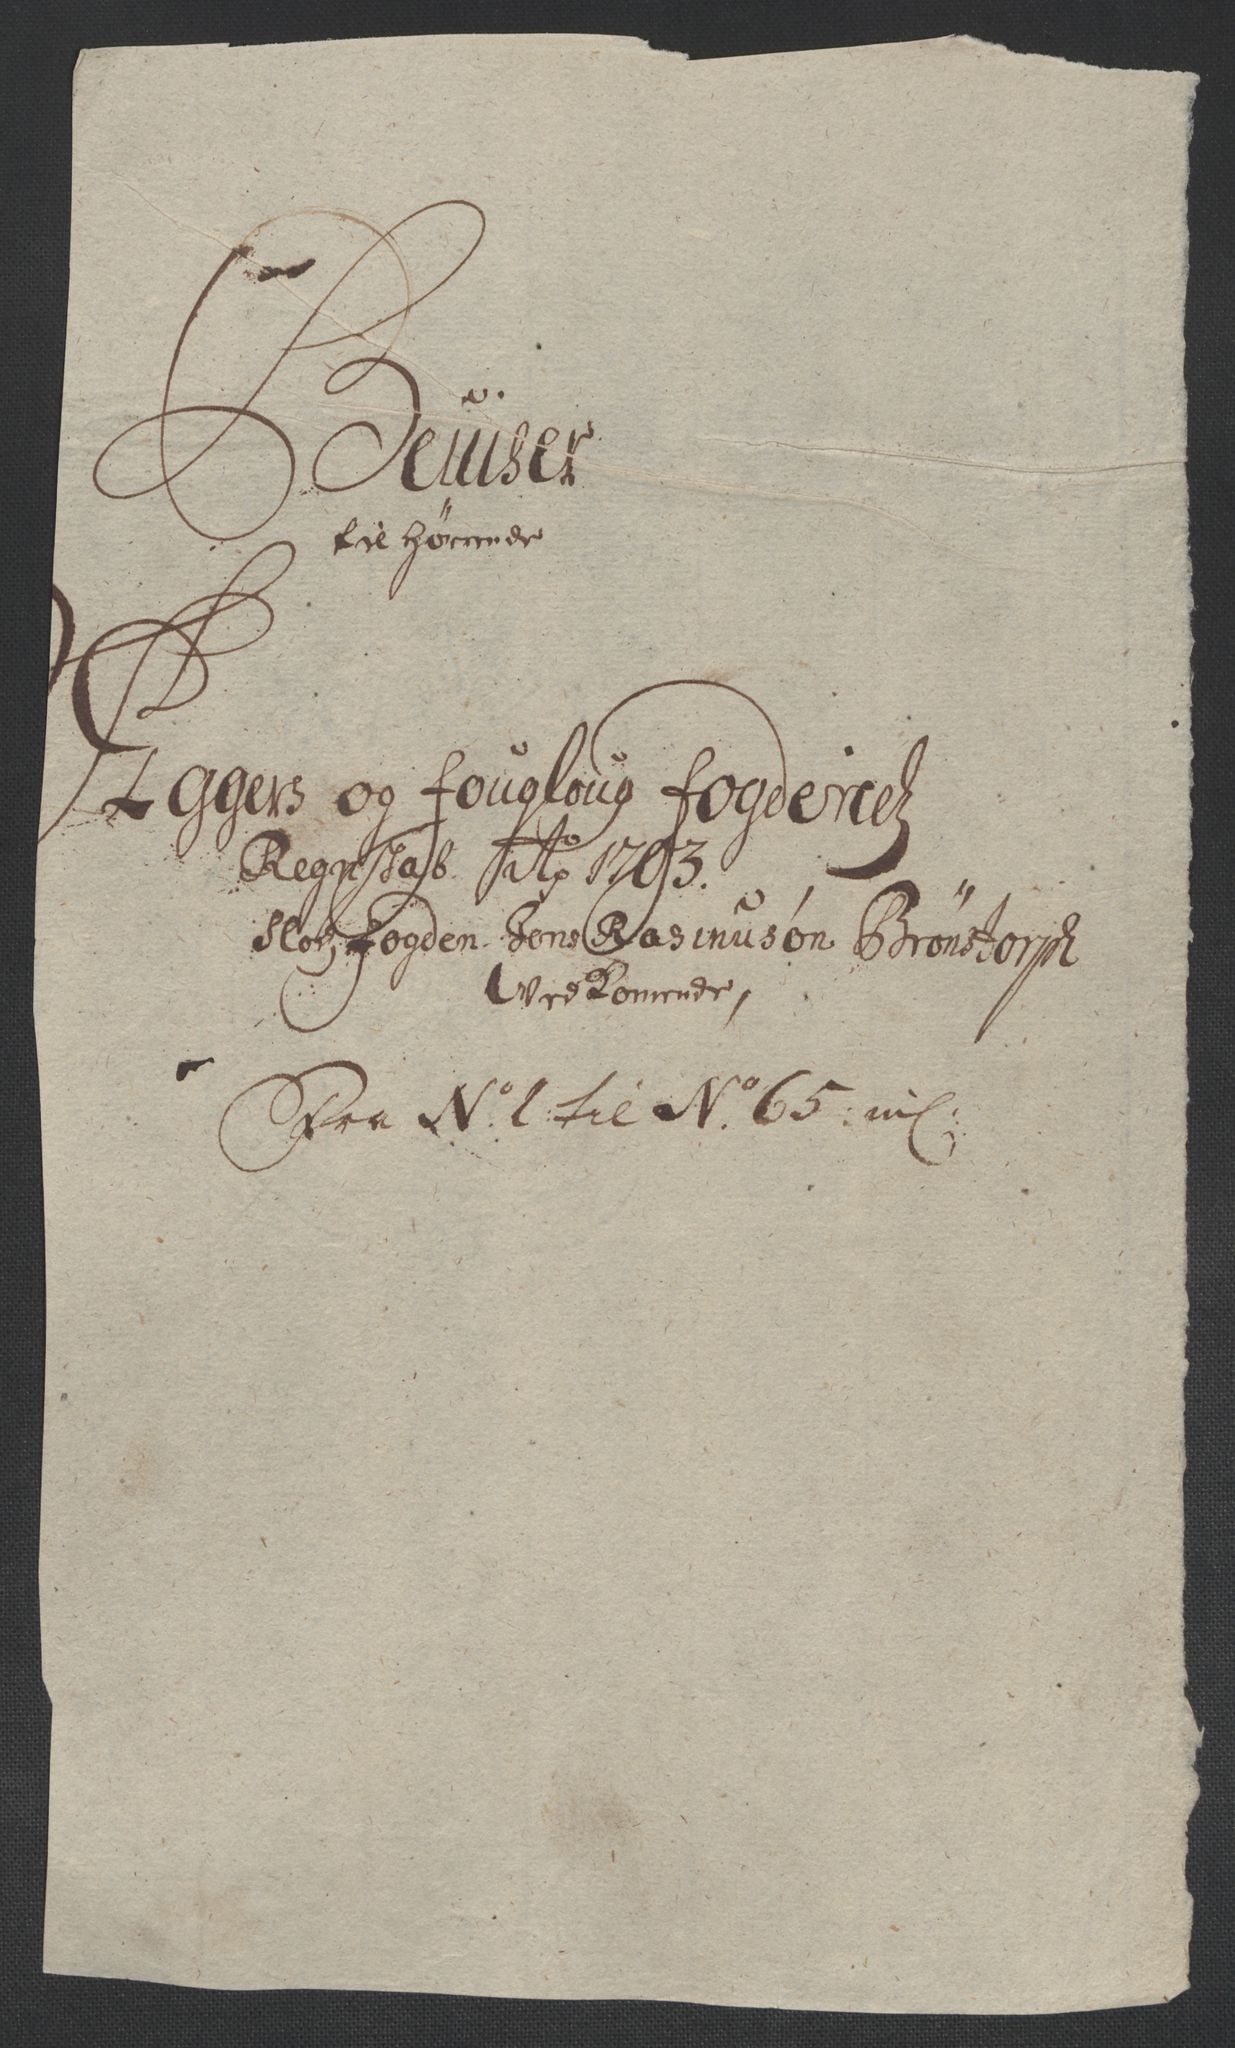 Beuiser
til hørende
Aggers og fougloug fogderietz
Regnskab Ao 1703.
Slotz fogden Jens Rasmusøn Brönstorph
Vedkomende,
Fra No. 1 til No. 65: inCl: